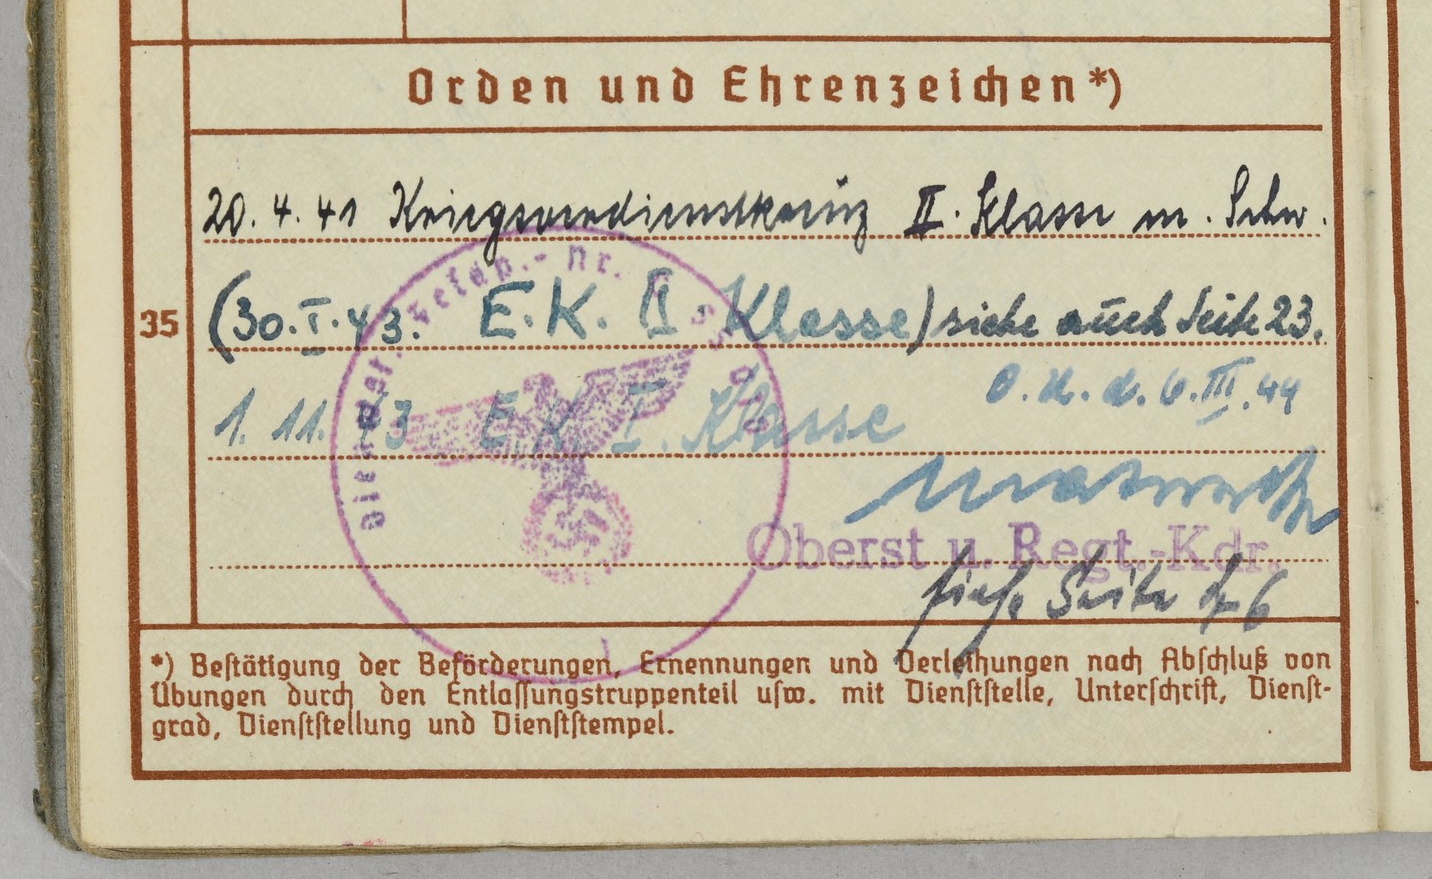 Orden und Ehrenzeichen*)
20.4.41 Kriegsverdienstkreuz II. Klasse m. Schw.
35
(30.I.43. E.K. II. Klasse) siehe auch Seite 23.
O.U. d. 6.III.44
1.11.43 E.K. I. Klasse
Dienstgr. Feldp.-Nr.
Oberst u. Regt.-Kdr.
siehe Seite
*) Bestätigung der Beförderungen, Ernennungen und Verleihungen nach Abschluß von
Übungen durch den Entlassungstruppenteil usw. mit Dienststelle, Unterschrift, Dienst-
grad, Dienststellung und Dienststempel.